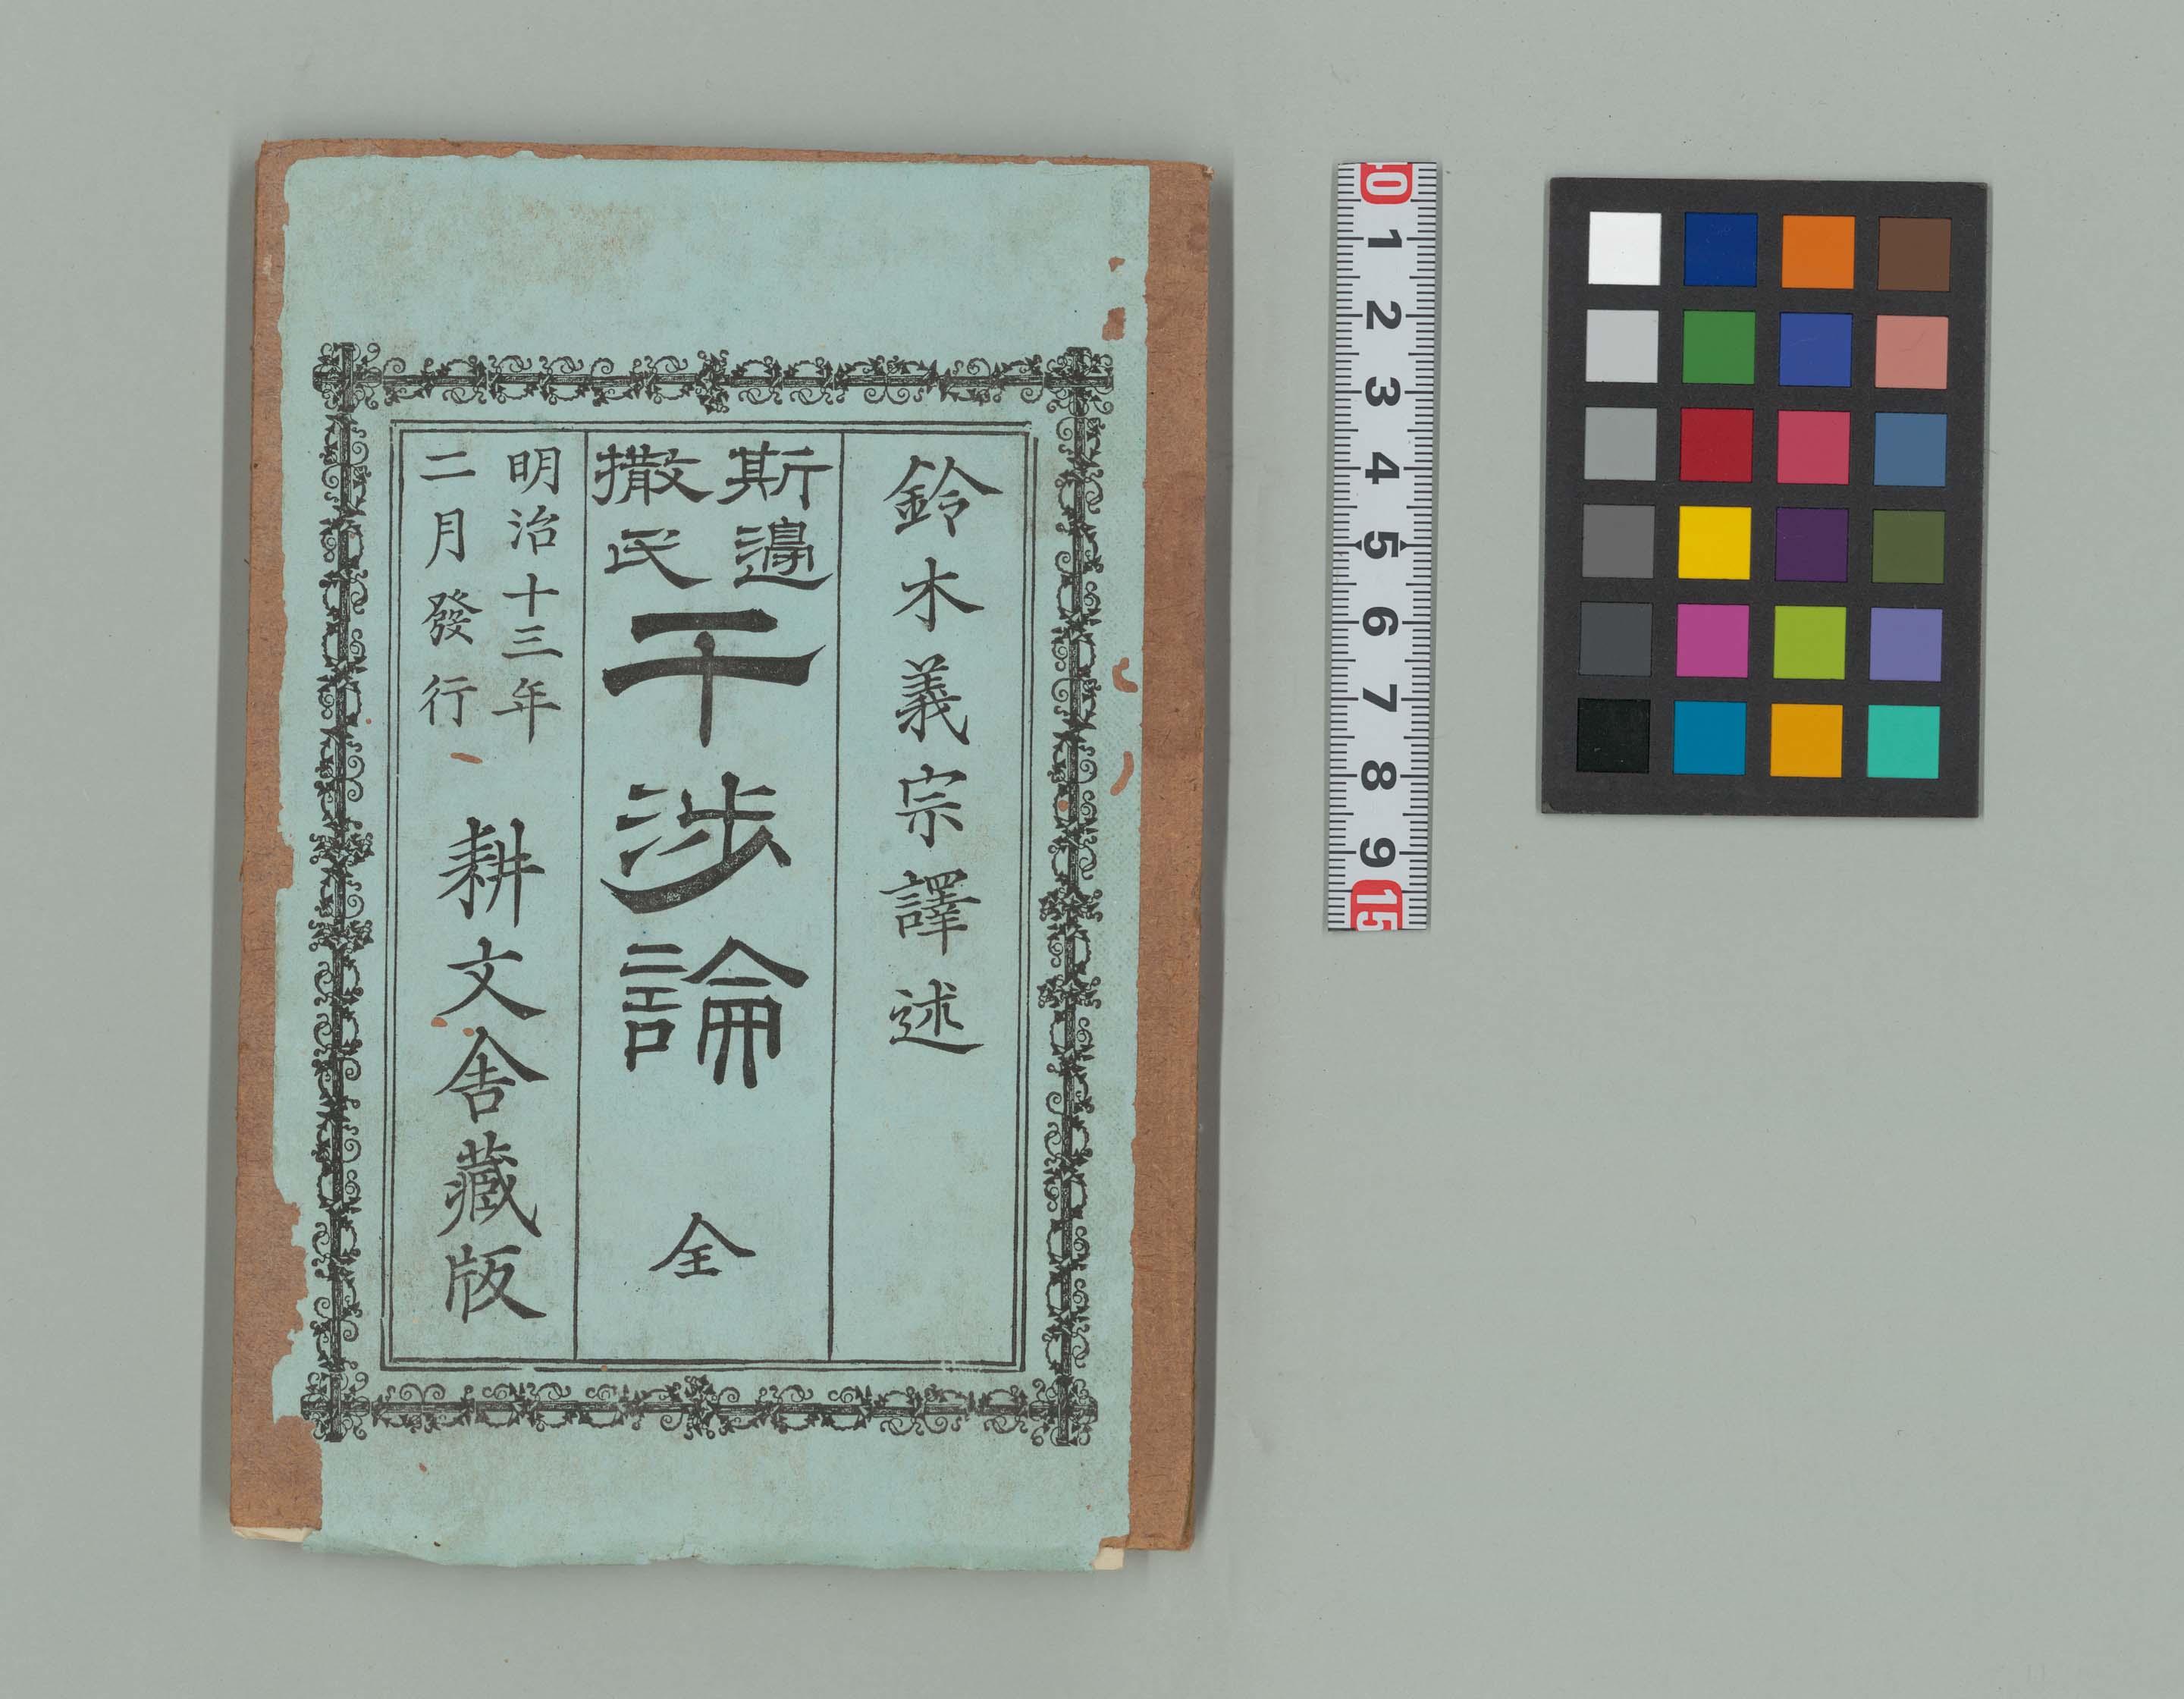 鈴木義宗譯述
斯邊
撒民
干涉論 全
明治十三年
二月發行
耕文舎藏版
0
1
2
3
4
5
6
7
8
9
15